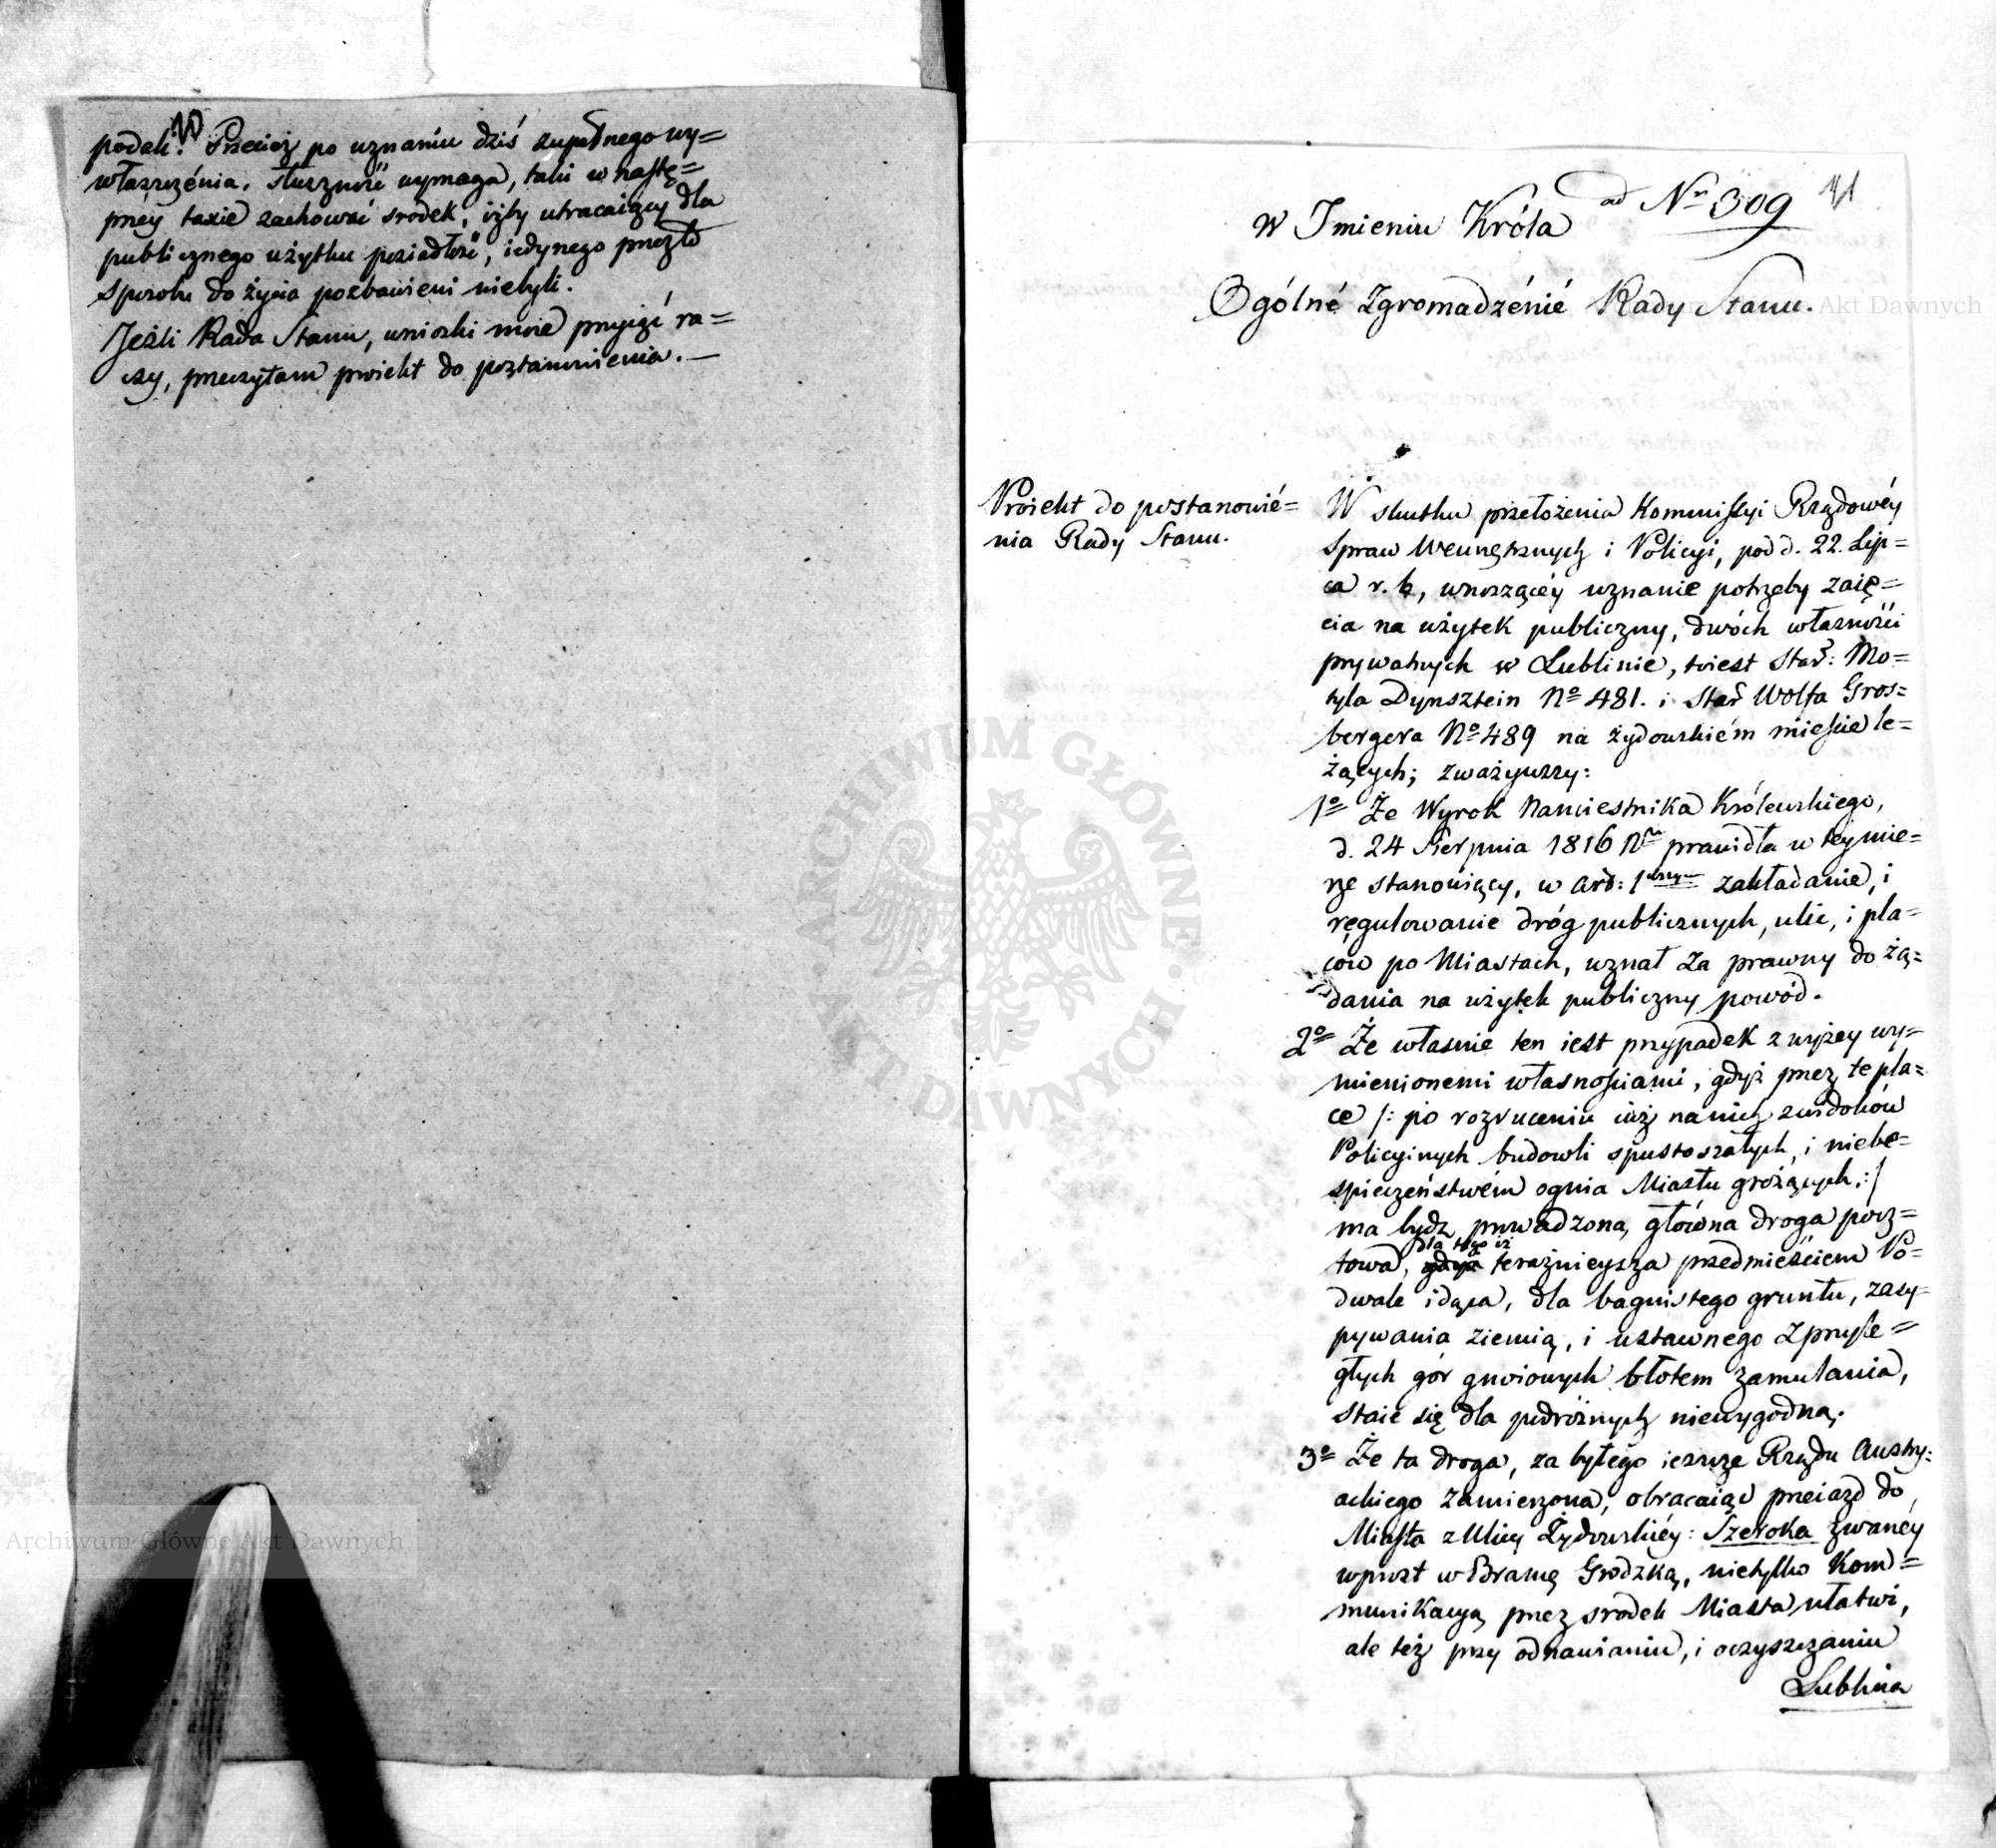 20
podał. Przecież po uznaniu dziś zupełnego wy=
właszczénia, słuszność wymaga, taki w nastę=
pnéy taxie zachować srodek, iżby utracaiący dla
publicznego użytku posiadłość, iedynego przez to
sposobu do życia pozbawieni niebyli.
Jeżli Rada Stanu, wnioski moie przyjąć ra=
czy, przeczytam proiekt do postanowienia. —
ad Nro 309
21
W Imieniu Króla
Ogólné Zgromadzénié Rady Stanu.
Proiekt do postanowié=
nia Rady Stanu.
W skutku przełożenia Kommissyi Rządowéy
Spraw Wewnętrznych i Policyi, pod d. 22. Lip=
ca r. b, wnoszącéy uznanie potrzeby zaię=
cia na użytek publiczny, dwóch własności
prywatnych w Lublinie, toiest Star: Mo=
tyla Dynsztein No 481. i Star Wolfa Gros=
bergera No 489 na żydowskiém mieście le=
żących; zważywszy:
1o Że Wyrok Namiestnika Królewskiego,
d. 24 Sierpnia 1816 Ru prawidła w tey mie=
rze stanowiący, w Art: 1wszym zakładanie, i
regulowanie dróg publicznych, ulic, i pla=
ców po Miastach, uznał za prawny do żą=
dania na użytek publiczny powód.
2o Że własnie ten iest przypadek z wyżey wy=
mienionemi własnościami, gdyż przez te pla=
ce /: po rozruceniu iuż na nich z widoków
Policyinych budowli spustoszałych, i niebe=
spieczeństwém ognia Miastu grożących, :/
ma bydz prowadzona, główna droga pocz=
dla tego iż
towa, gdyż terażnieysza przedmieściem Po=
dwale idąca, dla bagnistego gruntu, zasy=
pywania ziemią, i ustawnego z przyle=
głych gór gnoiowych błotem zamulania,
staie się dla podróżnych niewygodną.
3o Że ta droga, za byłego ieszcze Rządu Austry=
ackiego zamierzona, obracaiąc przeiazd do
Miasta z Ulicy Żydowskiéy: Szeroka zwanéy
wprost w Bramę Grodzką, nietylko Kom=
munikacyą przez srodek Miasta ułatwi,
ale też przy odnawianiu, i oczyszczaniu
Lublina
Archiwum Główne Akt Dawnych
Akt Dawnych
ARCHIWUM GŁÓWNE AKT DAWNYCH